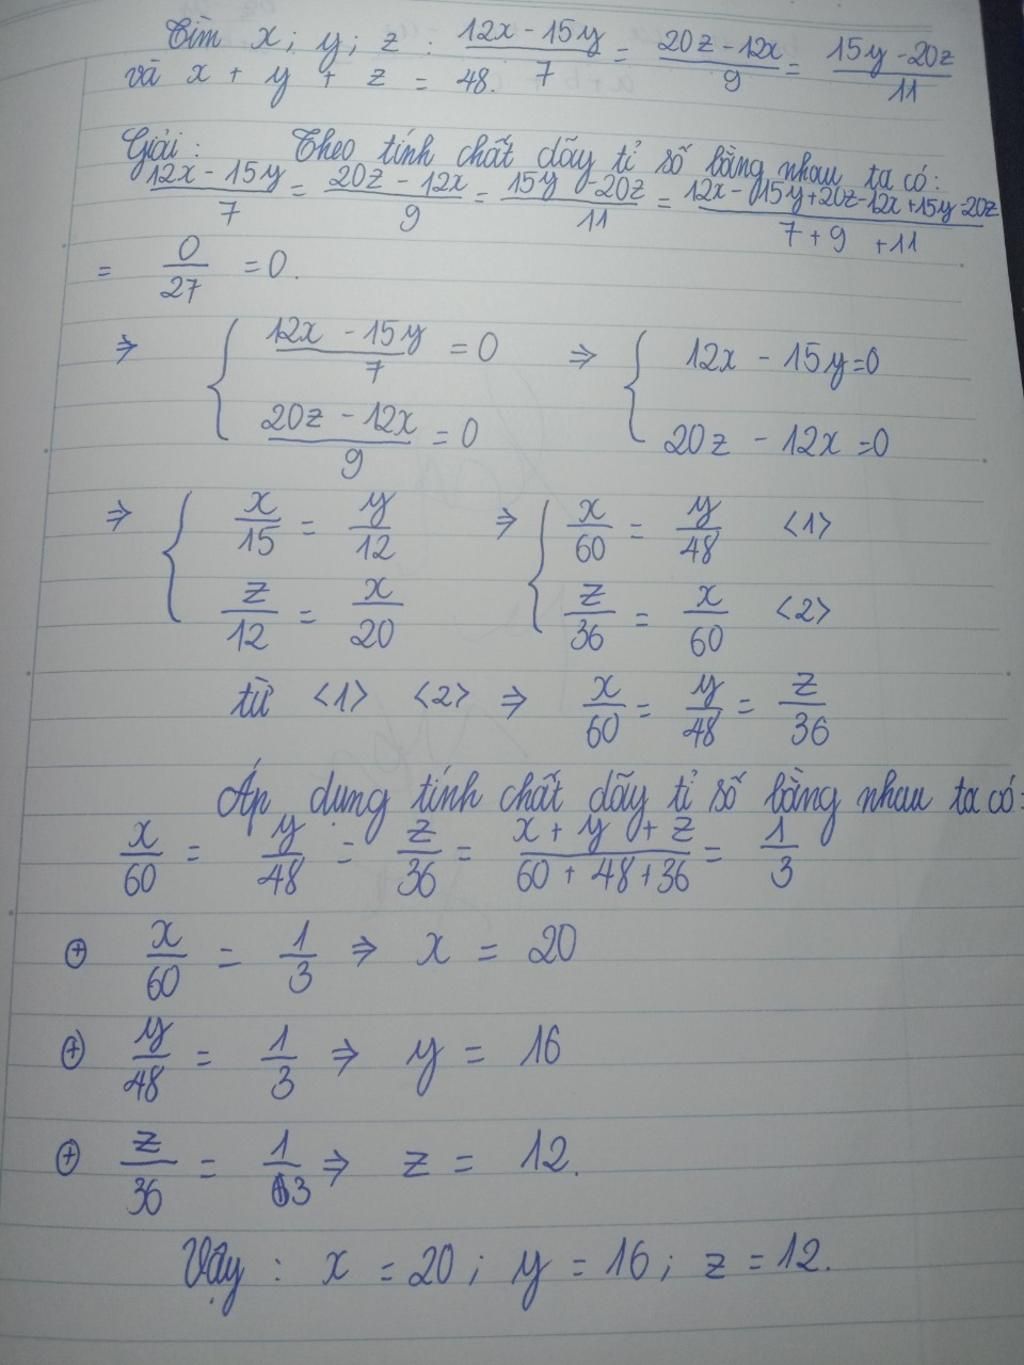 Tìm x; y; z : (12x - 15y)/7 = (20z - 12x)/9 = (15y - 20z)/11
và x + y + z = 48.
Giải : Theo tính chất dãy tỉ số bằng nhau ta có:
(12x - 15y)/7 = (20z - 12x)/9 = (15y - 20z)/11 = (12x - 15y + 20z - 12x + 15y - 20z)/(7 + 9 + 11)
= 0/27 = 0.
⇒ { (12x - 15y)/7 = 0 ⇒ { 12x - 15y = 0
(20z - 12x)/9 = 0 20z - 12x = 0
⇒ { x/15 = y/12 ⇒ { x/60 = y/48 <1>
z/12 = x/20 z/36 = x/60 <2>
từ <1> <2> ⇒ x/60 = y/48 = z/36
Áp dụng tính chất dãy tỉ số bằng nhau ta có:
x/60 = y/48 = z/36 = (x + y + z)/(60 + 48 + 36) = 1/3
⊕ x/60 = 1/3 ⇒ x = 20
⊕ y/48 = 1/3 ⇒ y = 16
⊕ z/36 = 1/3 ⇒ z = 12.
Vậy : x = 20 ; y = 16 ; z = 12.